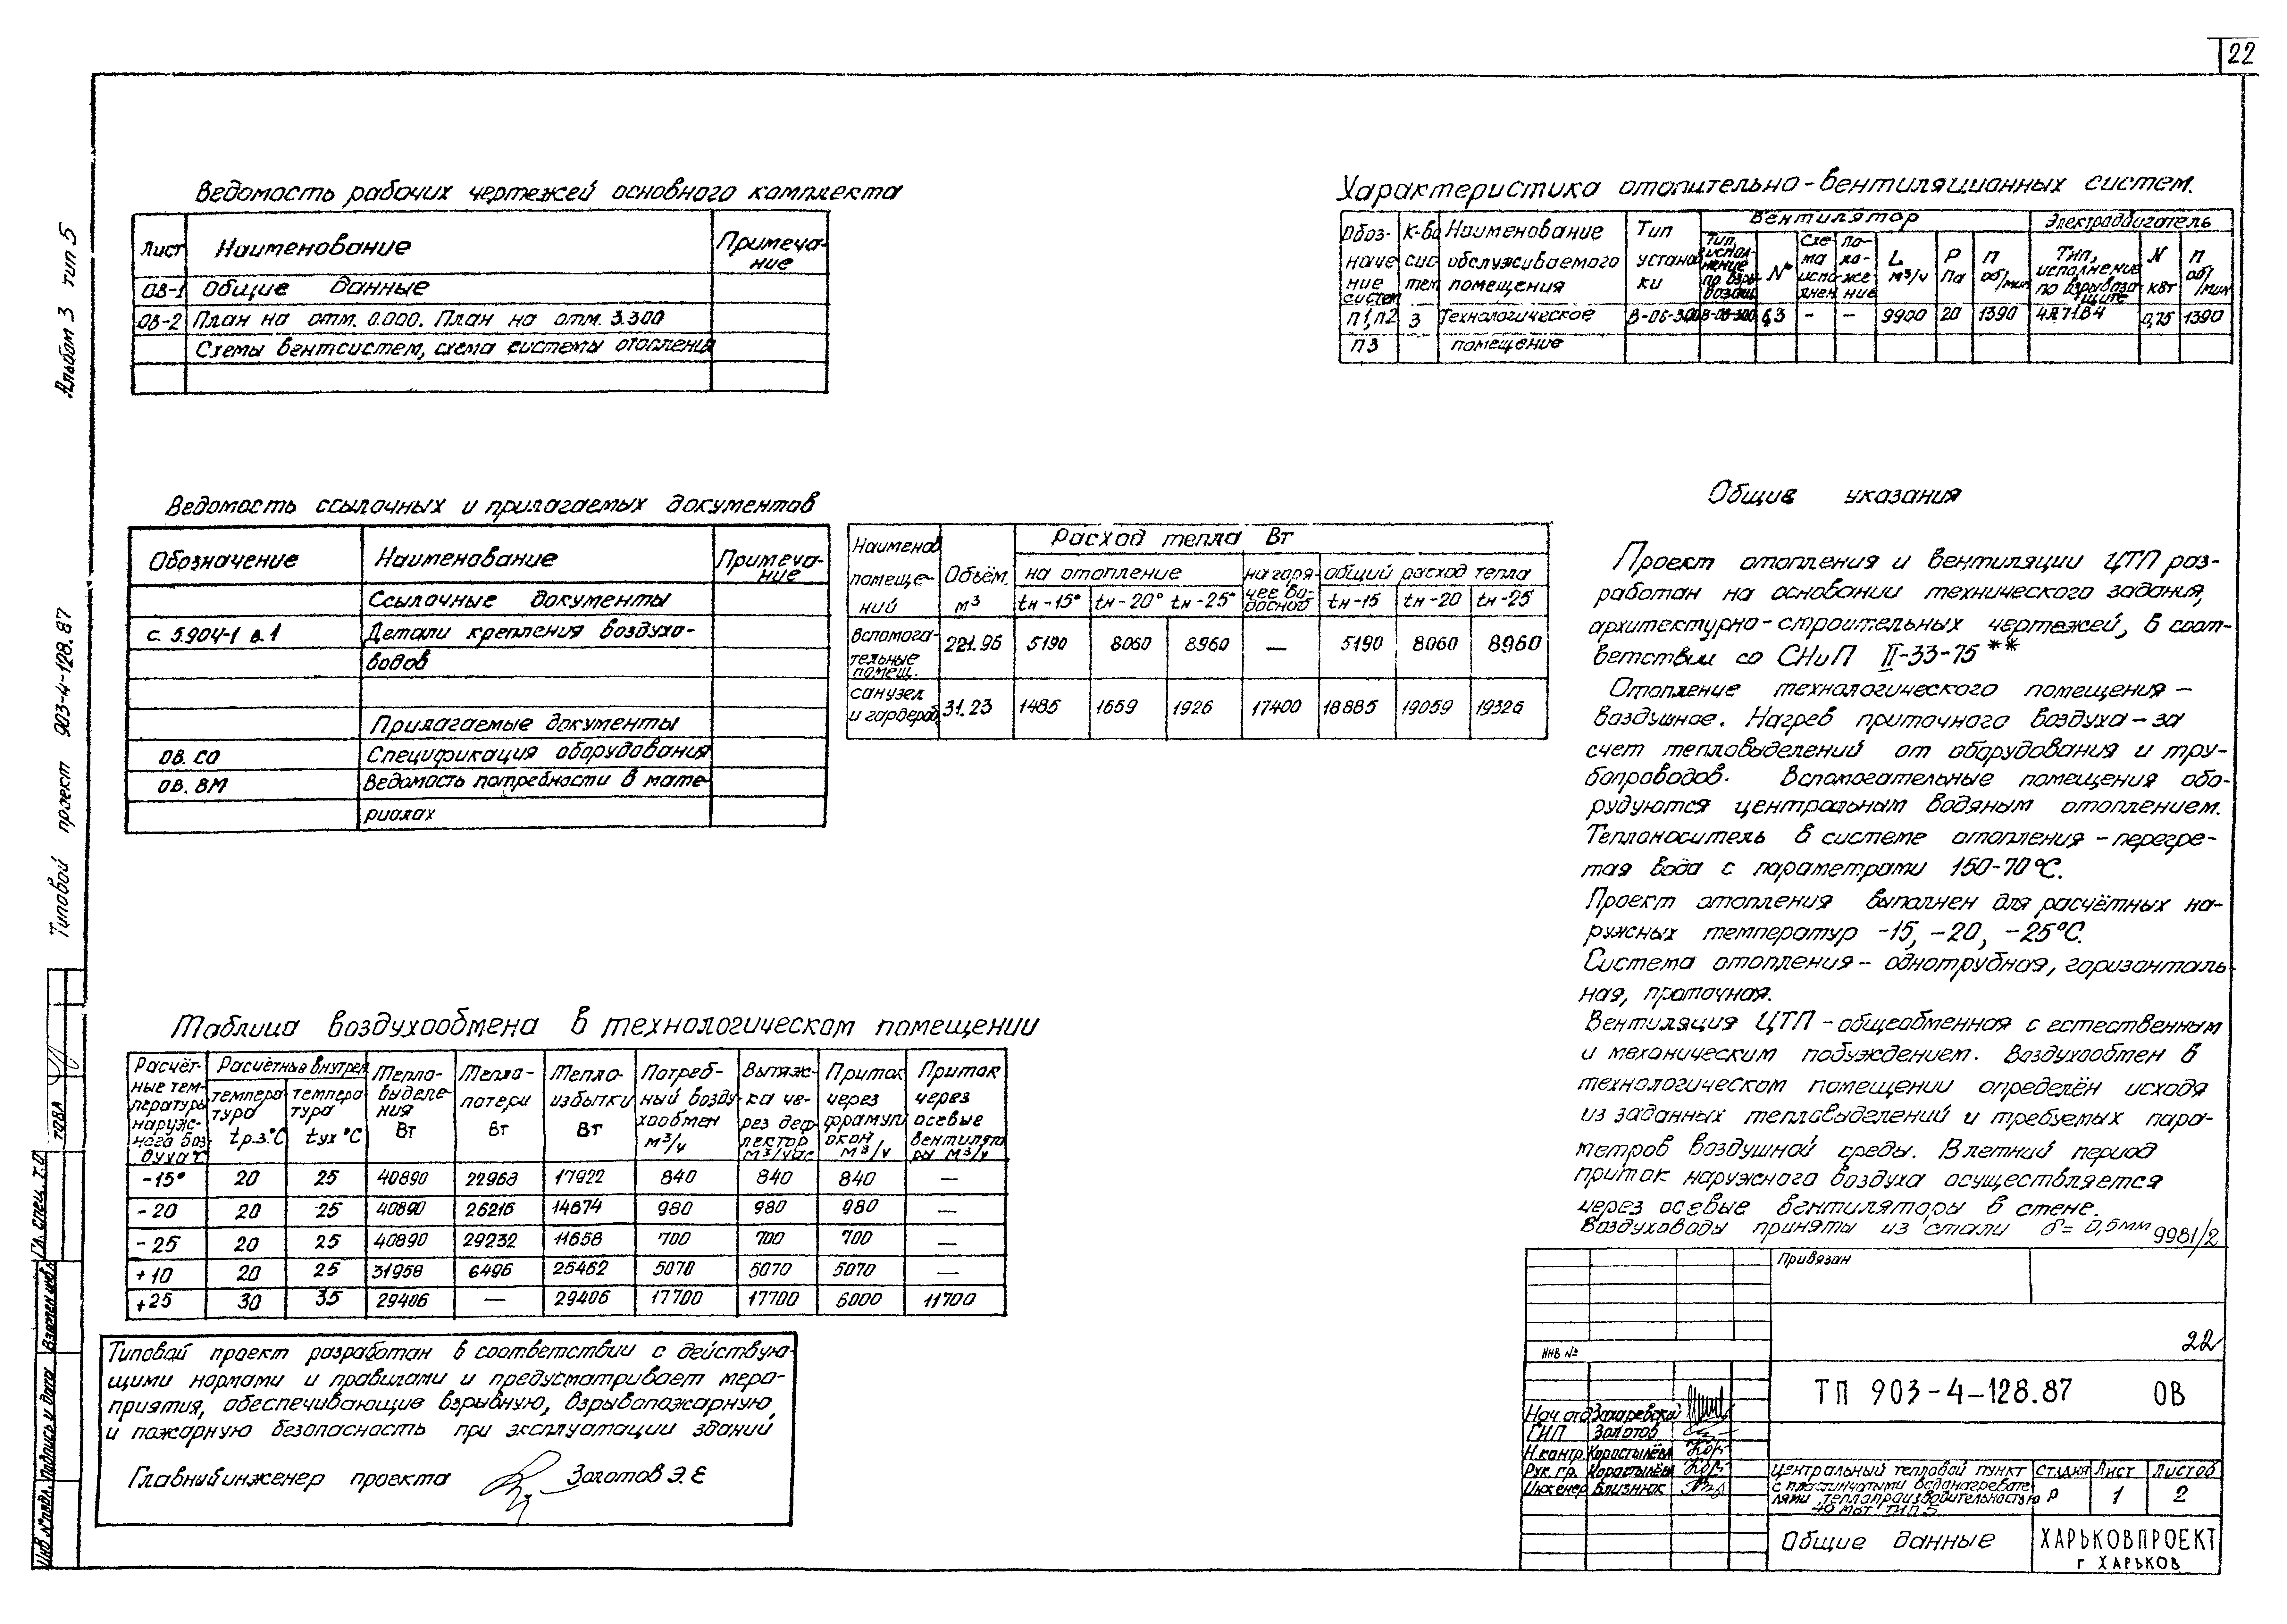 22
Альбом 3 тип 5
Типовой проект 903-4-128.87
Ведомость рабочих чертежей основного комплекта
Лист Наименование Примеча-
ние
ОВ-1 Общие данные
ОВ-2 План на отм. 0.000. План на отм. 3.300
Схемы вентсистем, схема системы отопления
Характеристика отопительно-вентиляционных систем.
Обоз-
наче
ние
систем
К-во
сис
тем
Наименование
обслуживаемого
помещения
Тип
установ
ки
Вентилятор
Тип,
исполнение
по взры-
возащ.
№
Схе
ма
испо
лнен
По-
ло-
же
ние
L
м³/ч
P
Па
n
об/мин
Электродвигатель
Тип,
исполнение
по взрывоза
щите
N
кВт
n
об/мин
П1,П2 3 Технологическое В-06-300 В-06-300 6,3 – – 9900 20 1390 4А71В4 0,75 1390
П3 помещение
Ведомость ссылочных и прилагаемых документов
Обозначение Наименование Примеча-
ние
Ссылочные документы
с. 5.904-1 в.1 Детали крепления воздухо-
водов
Прилагаемые документы
ОВ. СО Спецификация оборудования
ОВ. ВМ Ведомость потребности в мате-
риалах
Наименов
помеще-
ний
Объём.
м³
Расход тепла Вт
на отопление
на горя-
чее во-
доснаб
общий расход тепла
tн-15° tн-20° tн-25° tн-15 tн-20 tн-25
Вспомога-
тельные
помещ.
221.96 5190 8060 8960 — 5190 8060 8960
санузел
и гардероб
31.23 1485 1659 1926 17400 18885 19059 19326
Общие указания
Проект отопления и вентиляции ЦТП раз-
работан на основании технического задания,
архитектурно-строительных чертежей, в соот-
ветствии со СНиП II-33-75**
Отопление технологического помещения –
воздушное. Нагрев приточного воздуха – за
счет тепловыделений от оборудования и тру-
бопроводов. Вспомогательные помещения обо-
рудуются центральным водяным отоплением.
Теплоноситель в системе отопления – перегре-
тая вода с параметрами 150-70°С.
Проект отопления выполнен для расчётных на-
ружных температур -15, -20, -25°С.
Система отопления – однотрубная, горизонталь-
ная, проточная.
Вентиляция ЦТП – общеобменная с естественным
и механическим побуждением. Воздухообмен в
технологическом помещении определён исходя
из заданных тепловыделений и требуемых пара-
метров воздушной среды. В летний период
приток наружного воздуха осуществляется
через осевые вентиляторы в стене.
Воздуховоды приняты из стали δ= 0,5мм
9981/2
Таблица воздухообмена в технологическом помещении
Расчёт-
ные тем-
пературы
наруж-
ного воз
духа°С
Расчётные внутрен
темпера
тура
tр.з.°С
темпера
тура
tух °С
Тепло-
выделе-
ния
Вт
Тепло-
потери
Вт
Тепло-
избытки
Вт
Потреб-
ный возду
хообмен
м³/ч
Вытяж-
ка че-
рез деф
лектор
м³/час
Приток
через
фрамуги
окон
м³/ч
Приток
через
осевые
вентилято
ры м³/ч
-15° 20 25 40890 22968 17922 840 840 840 —
-20 20 25 40890 26216 14674 980 980 980 —
-25 20 25 40890 29232 11658 700 700 700 —
+10 20 25 31958 6496 25462 5070 5070 5070 —
+25 30 35 29406 — 29406 17700 17700 6000 11700
Типовой проект разработан в соответствии с действую-
щими нормами и правилами и предусматривает меро-
приятия, обеспечивающие взрывную, взрывопожарную
и пожарную безопасность при эксплуатации зданий
Главный инженер проекта Золотов Э.Е
Гл. спец. Т.О
Инв № подл. Подпись и дата Взамен инв.№
Привязан
ИНВ №
22
ТП 903-4-128.87 ОВ
Нач. отд Захаревский
ГИП Золотов
Н.контр. Коростылёва
Рук. гр. Коростылёва
Инженер Близнюк
Центральный тепловой пункт
с пластинчатыми водонагревате
лями теплопроизводительностью
40 мвт тип 5
Стадия Лист Листов
Р 1 2
Общие данные
ХАРЬКОВПРОЕКТ
г ХАРЬКОВ